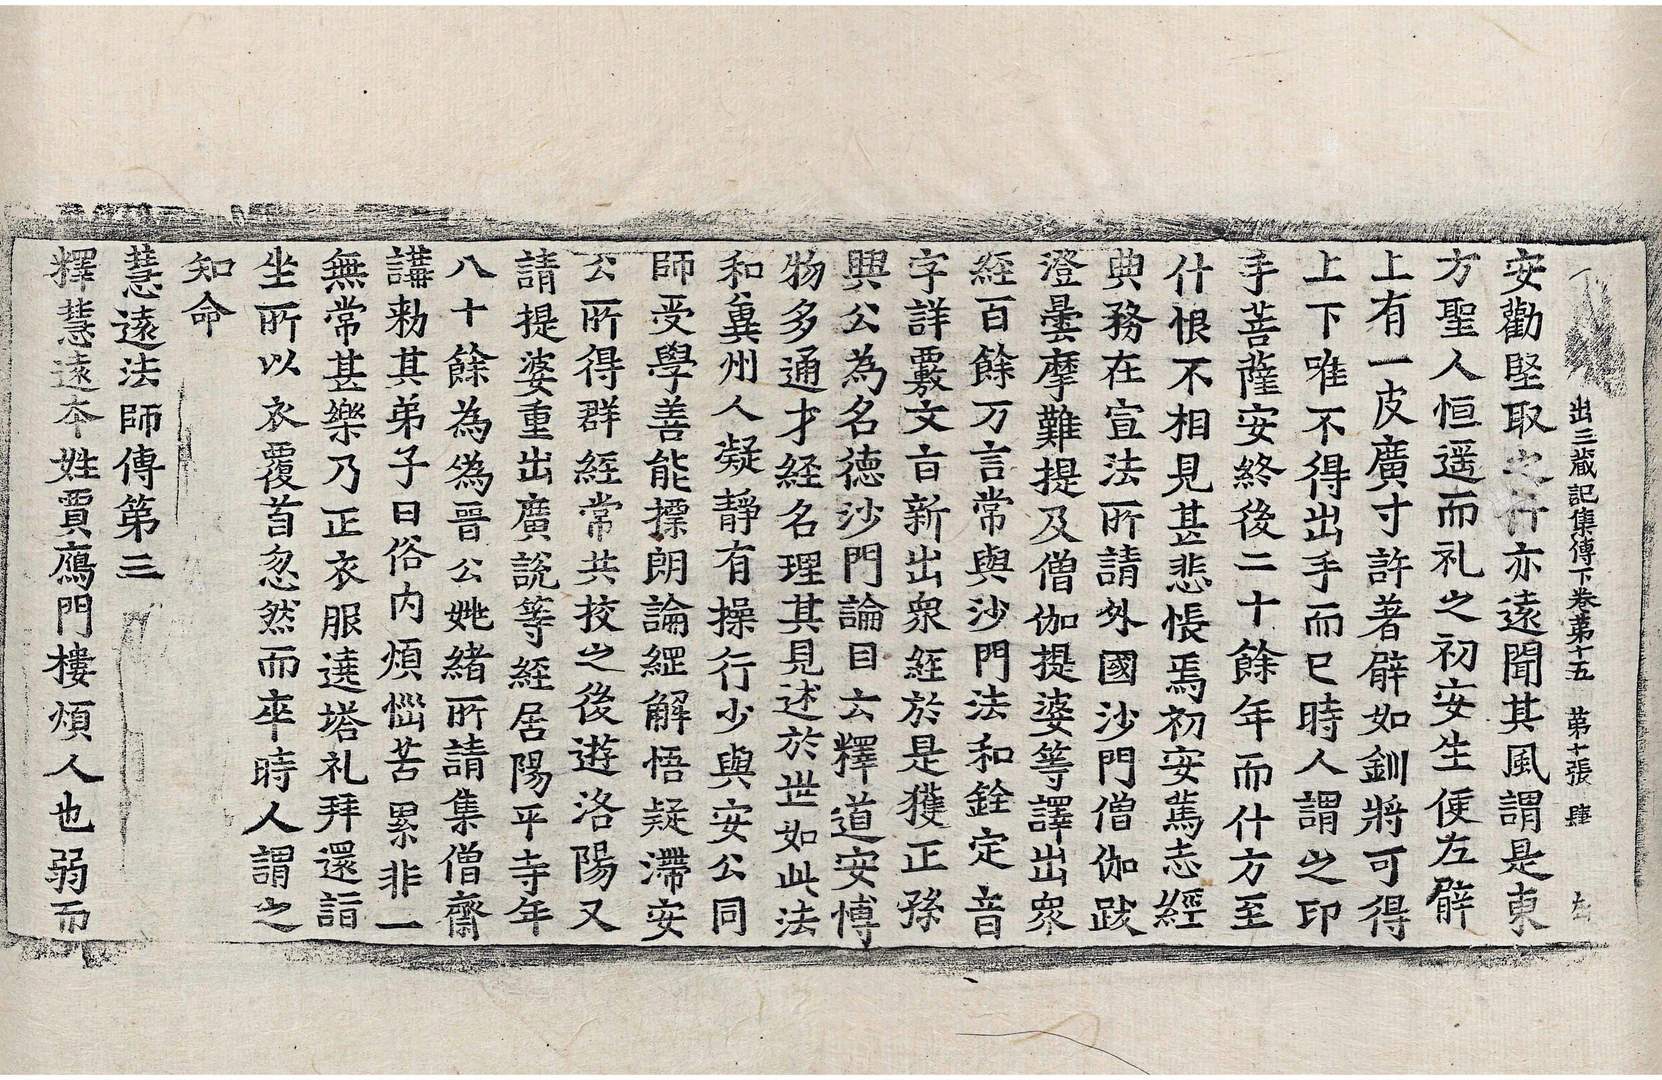 出三藏記集傳下卷第十五　第十張　肆
安勸堅取之什亦遠聞其風謂是東
方聖人恒遥而礼之初安生便左臂
上有一皮廣寸許著臂如釧將可得
上下唯不得出手而已時人謂之印
手菩薩安終後二十餘年而什方至
什恨不相見甚悲悵焉初安篤志經
典務在宣法所請外國沙門僧伽跋
澄曇摩難提及僧伽提婆等譯出衆
經百餘万言常與沙門法和銓定音
字詳覈文旨新出衆經於是獲正孫
興公為名德沙門論目云釋道安博
物多通才經名理其見述於世如此法
和冀州人凝靜有操行少與安公同
師受學善能摽朗論經解悟疑滯安
公所得群經常共挍之後遊洛陽又
請提婆重出廣說等經居陽平寺年
八十餘為偽晉公姚緒所請集僧齋
講勑其弟子曰俗内煩惱苦累非一
無常甚樂乃正衣服遶塔礼拜還詣
坐所以衣覆首忽然而卒時人謂之
知命
慧遠法師傳第三
釋慧遠本姓賈鴈門樓煩人也弱而